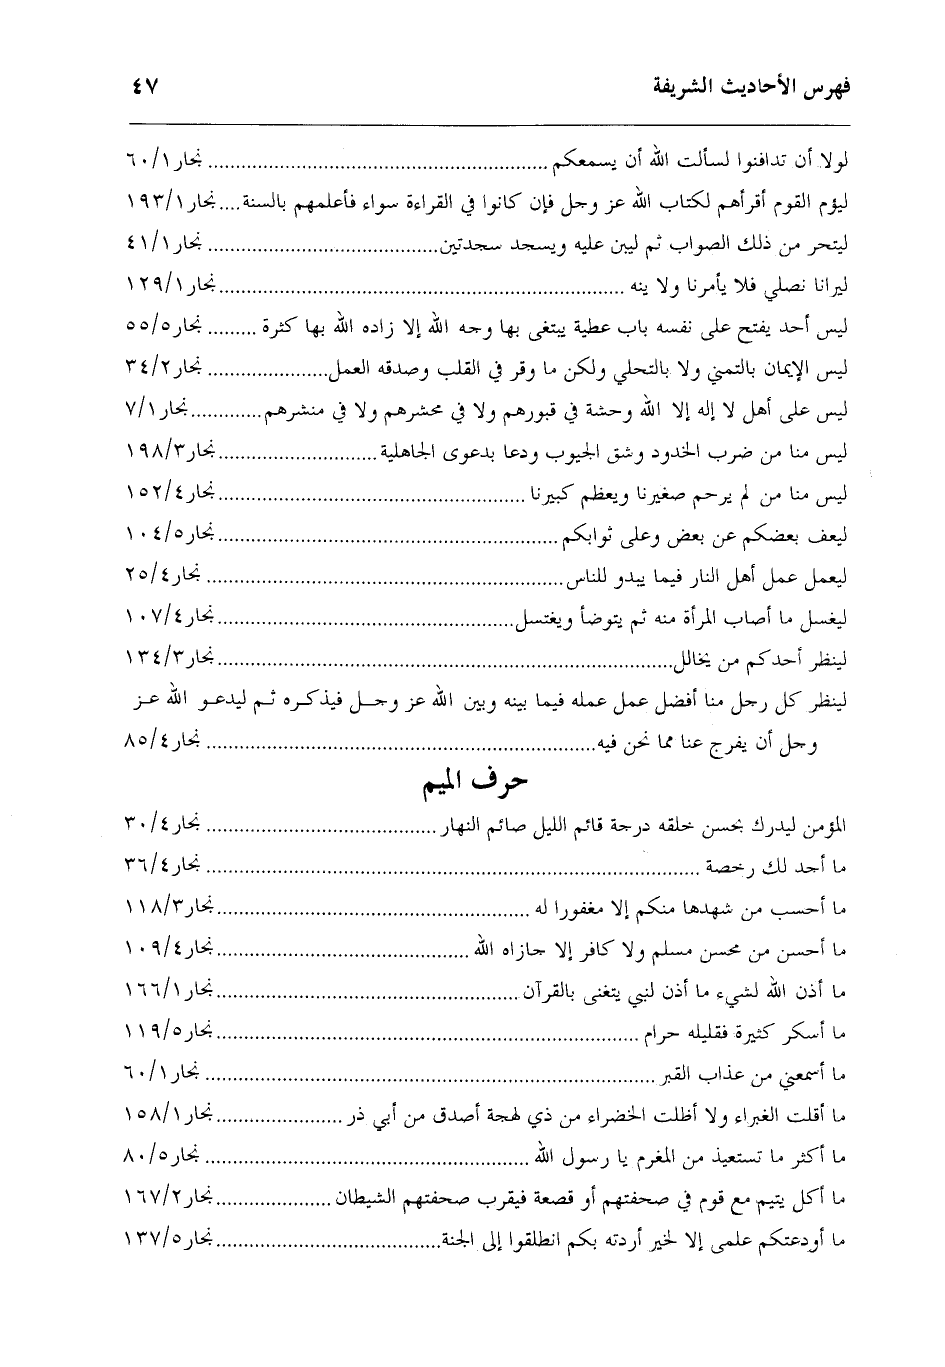 فهرس الأحاديث الشريفة ٤٧
لولا أن تدافنوا لسألت الله أن يسمعكم ........ نجار ٦٠/١
ليؤم القوم أقرأهم لكتاب الله عز وجل فإن كانوا في القراءة سواء فأعلمهم بالسنة .... نجار ١٩٣/١
ليتحر من ذلك الصواب ثم ليبن عليه ويسجد سجدتين ........ نجار ٤١/١
ليرانا نصلي فلا يأمرنا ولا ينه ........ نجار ١٢٩/١
ليس أحد يفتح على نفسه باب عطية يبتغى بها وجه الله إلا زاده الله بها كثرة ........ نجار ٥٥/٥
ليس الإيمان بالتمني ولا بالتحلي ولكن ما وقر في القلب وصدقه العمل ........ نجار ٣٤/٢
ليس على أهل لا إله إلا الله وحشة في قبورهم ولا في محشرهم ولا في منشرهم ........ نجار ٧/١
ليس منا من ضرب الخدود وشق الجيوب ودعا بدعوى الجاهلية ........ نجار ١٩٨/٣
ليس منا من لم يرحم صغيرنا ويعظم كبيرنا ........ نجار ١٥٢/٤
ليعف بعضكم عن بعض وعلى ثوابكم ........ نجار ١٠٤/٥
ليعمل عمل أهل النار فيما يبدو للناس ........ نجار ٢٥/٤
ليغسل ما أصاب المرأة منه ثم يتوضأ ويغتسل ........ نجار ١٠٧/٤
لينظر أحدكم من يخالل ........ نجار ١٣٤/٣
لينظر كل رجل منا أفضل عمل عمله فيما بينه وبين الله عز وجل فيذكره ثم ليدعو الله عز
وجل أن يفرج عنا مما نحن فيه ........ نجار ٨٥/٤
حرف الميم
المؤمن ليدرك بحسن خلقه درجة قائم الليل صائم النهار ........ نجار ٣٠/٤
ما أجد لك رخصة ........ نجار ٣٦/٤
ما أحسب من شهدها منكم إلا مغفورا له ........ نجار ١١٨/٣
ما أحسن من محسن مسلم ولا كافر إلا جازاه الله ........ نجار ١٠٩/٤
ما أذن الله لشيء ما أذن لنبي يتغنى بالقرآن ........ نجار ١٦٦/١
ما أسكر كثيرة فقليله حرام ........ نجار ١١٩/٥
ما أسمعني من عذاب القبر ........ نجار ٦٠/١
ما أقلت الغبراء ولا أظلت الخضراء من ذي لهجة أصدق من أبي ذر ........ نجار ١٥٨/١
ما أكثر ما تستعيذ من المغرم يا رسول الله ........ نجار ٨٠/٥
ما أكل يتيم مع قوم في صحفتهم أو قصعة فيقرب صحفتهم الشيطان ........ نجار ١٦٧/٢
ما أودعتكم علمى إلا لخير أردته بكم انطلقوا إلى الجنة ........ نجار ١٣٧/٥